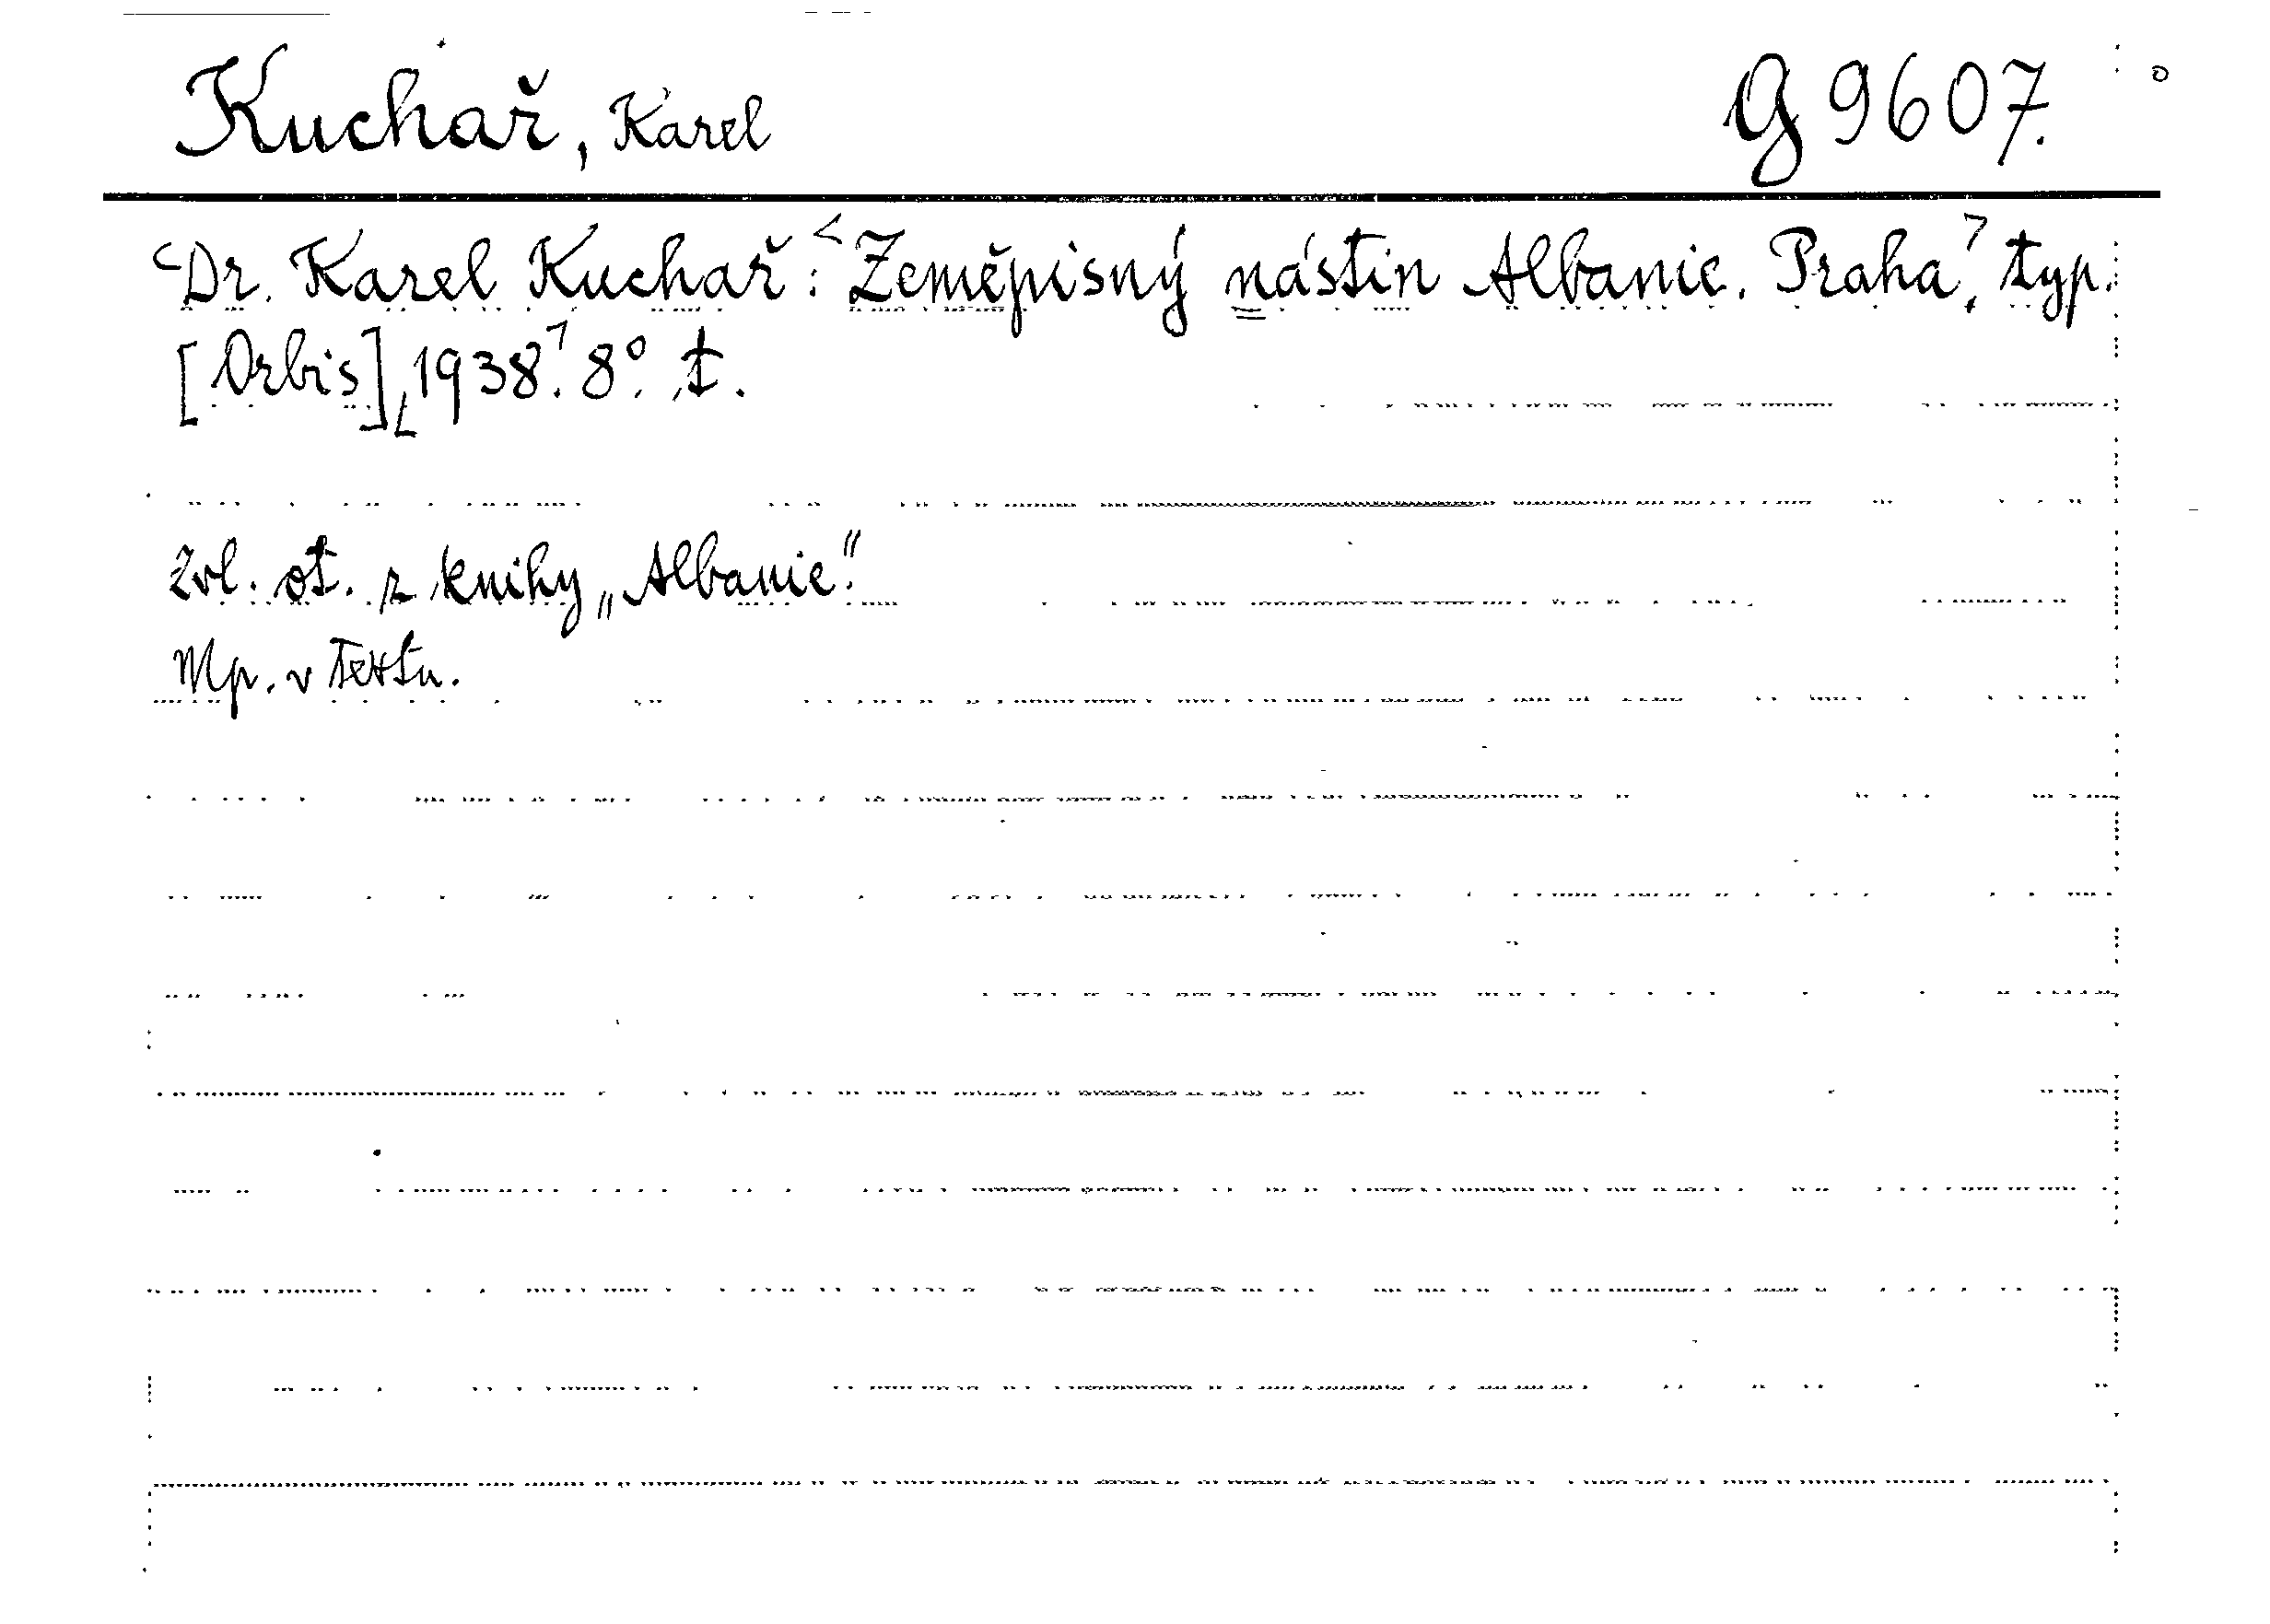 Kuchař, Karel G 9607.
<Dr. Karel Kuchař: <Zeměpisný nástin Albanie. Praha>, typ.
[Orbis], 1938>. 8°. t.
Zvl. ot. z knihy „Albanie“.
Mp. v textu.